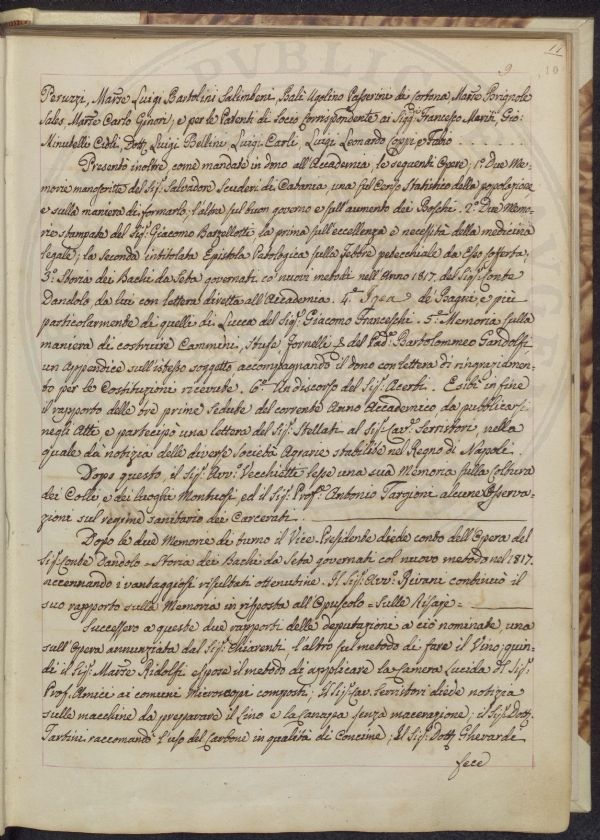 11
9
10
Peruzzi, Marse Luigi Bartolini Salimbeni, Balì Ugolino Passerini di Cortona Marse Brignole
Sales, Marse Carlo Ginori; e per le Patenti di Socio Corrispondente ai Sigri Francesco Marin, Gio:
Minutelli Cioli, Dott. Luigi Bellini, Luigi Carli, Luigi Leonardo Coppi e Fabio
Presentò inoltre, come mandate in dono all'Accademia, le seguenti Opere; 1.° Due Me-
morie manoscritte del Sig. Salvadore Scuderi di Catania, una sul Censo Statistico della popolazione
e sulla maniera di formarlo; l'altra sul buon governo e sull'aumento dei Boschi. 2.° Due Memo-
rie stampate del Sig. Giacomo Barzellotti la prima sull'eccellenza e necessità della medicina
legale; la Seconda intitolata Epistola Patologica sulla Febbre petecchiale da Esso sofferta;
3.° Storia dei Bachi da Seta governati co' nuovi metodi nell'Anno 1817. del Sig. Conte
Dandolo da lui con lettera diretta all'Accademia. 4.° Idea de Bagni, e più
particolarmente di quelli di Lucca del Sig. Giacomo Franceschi. 5.° Memoria sulla
maniera di costruire Cammini, Stufe, Fornelli & del Pad. Bartolommeo Gandolfi,
un Appendice sull'istesso soggetto, accompagnando il dono con lettera di ringraziamen-
to per le Costituzioni ricevute. 6.° Un discorso del Sig. Acerbi. Esibì in fine
il rapporto delle tre prime Sedute del corrente Anno Accademico, da pubblicarsi
negli Atti, e partecipò una lettera del Sig. Stellati al Sig. Cav. Serristori, nella
quale dà notizia delle diverse Società Agrarie stabilite nel Regno di Napoli.
Dopo questo, il Sig. Avv. Vecchietti lesse una sua Memoria sulla Coltura
dei Colli e dei luoghi Montuosi, ed il Sig. Prof. Antonio Targioni alcune Osserva-
zioni sul regime sanitario dei Carcerati.
Dopo le due Memorie di turno il Vice-Presidente diede conto dell'Opera del
Sig. Conte Dandolo - Storia dei Bachi da Seta governati col nuovo metodo nel 1817.
accennando i vantaggiosi risultati ottenutine. Il Sig. Avv. Rivani continuò il
suo rapporto sulla Memoria in risposta all'Opuscolo - Sulle Risaje -
Successero a queste due rapporti delle deputazioni a ciò nominate, uno
sull'Opera annunziata dal Sig. Chiarenti, l'altro sul metodo di fare il Vino; quin-
di il Sig. Marse Ridolfi espose il metodo di applicare la Camera Lucida del Sig.
Prof. Amici ai comuni Microscopi composti; Il Sig. Cav. Serristori diede notizia
sulle macchine da preparare il Lino e la Canapa senza macerazione; il Sig. Dott.
Tartini raccomandò l'uso del Carbone in qualità di Concime; Il Sig. Dott. Gherardi
fece